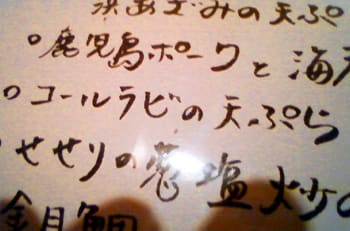 浜あざみの天ぷら
°鹿児島ポークと海
°コールラビの天ぷら
°せせりの葱塩炒め
金目鯛